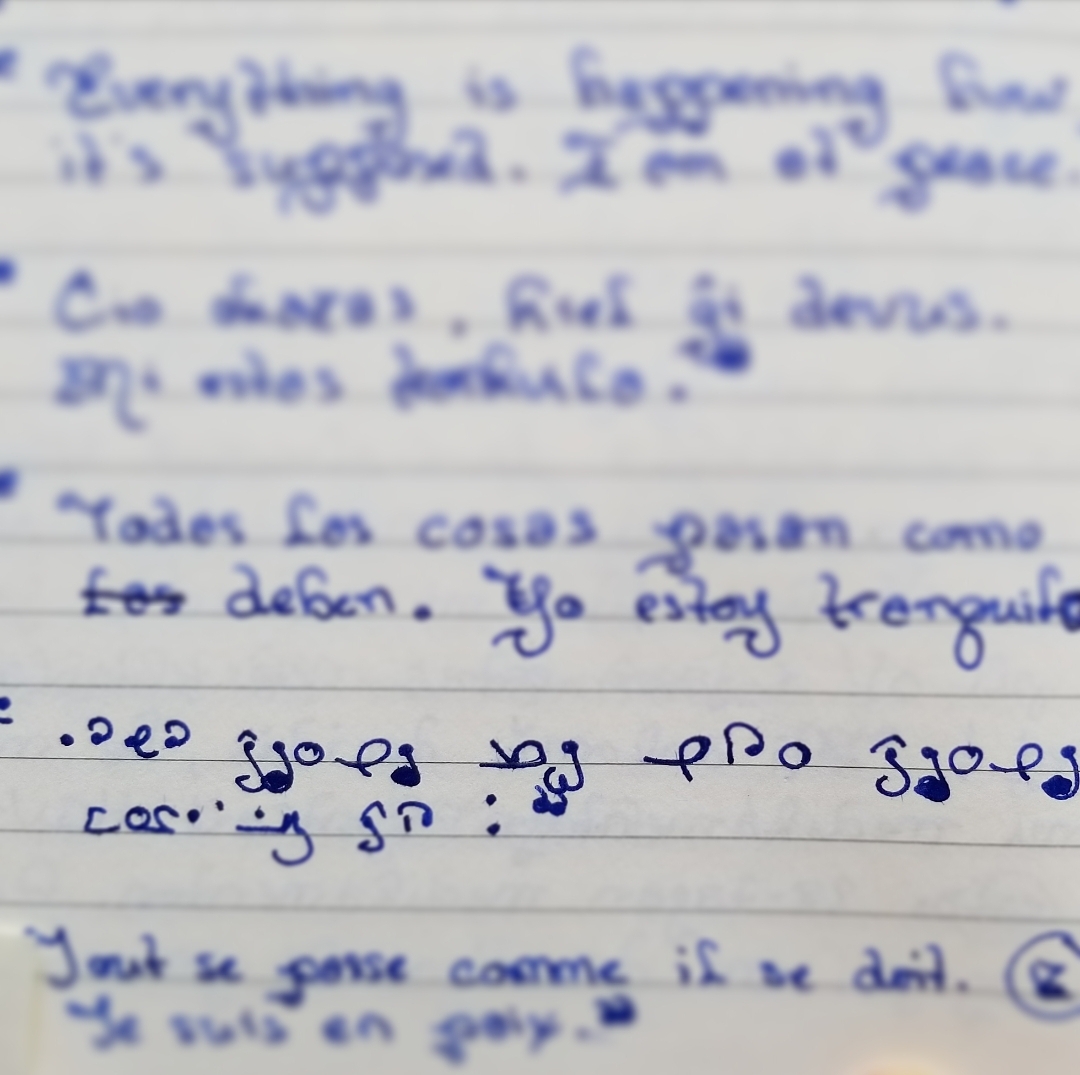 Everything is happening how
it's supposed. I am at peace.
Ĉio okazas, kiel ĝi devus.
Mi estas trankvila.
Todas las cosas pasan como
las deben. Yo estoy tranquilo
Tout se passe comme il se doit. 2
Je suis en paix.